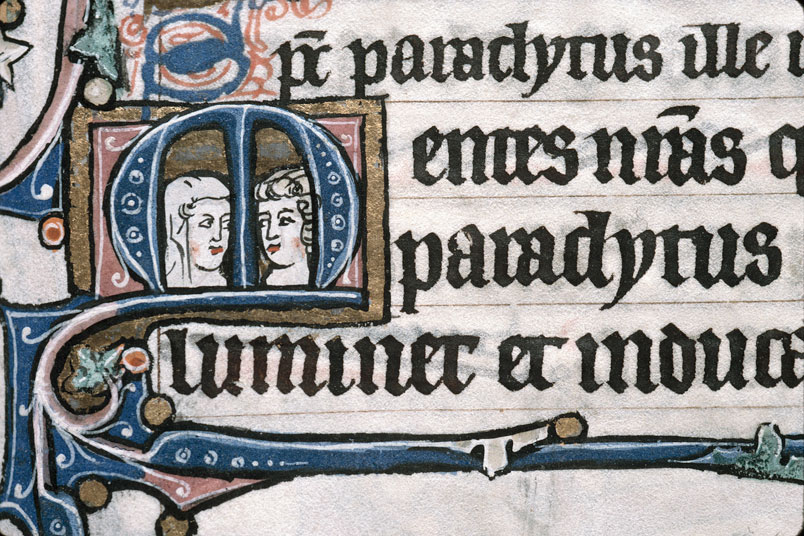 Spc̄ paraclytus ille
Mentes nr̄as q
paraclytus
luminet et induca